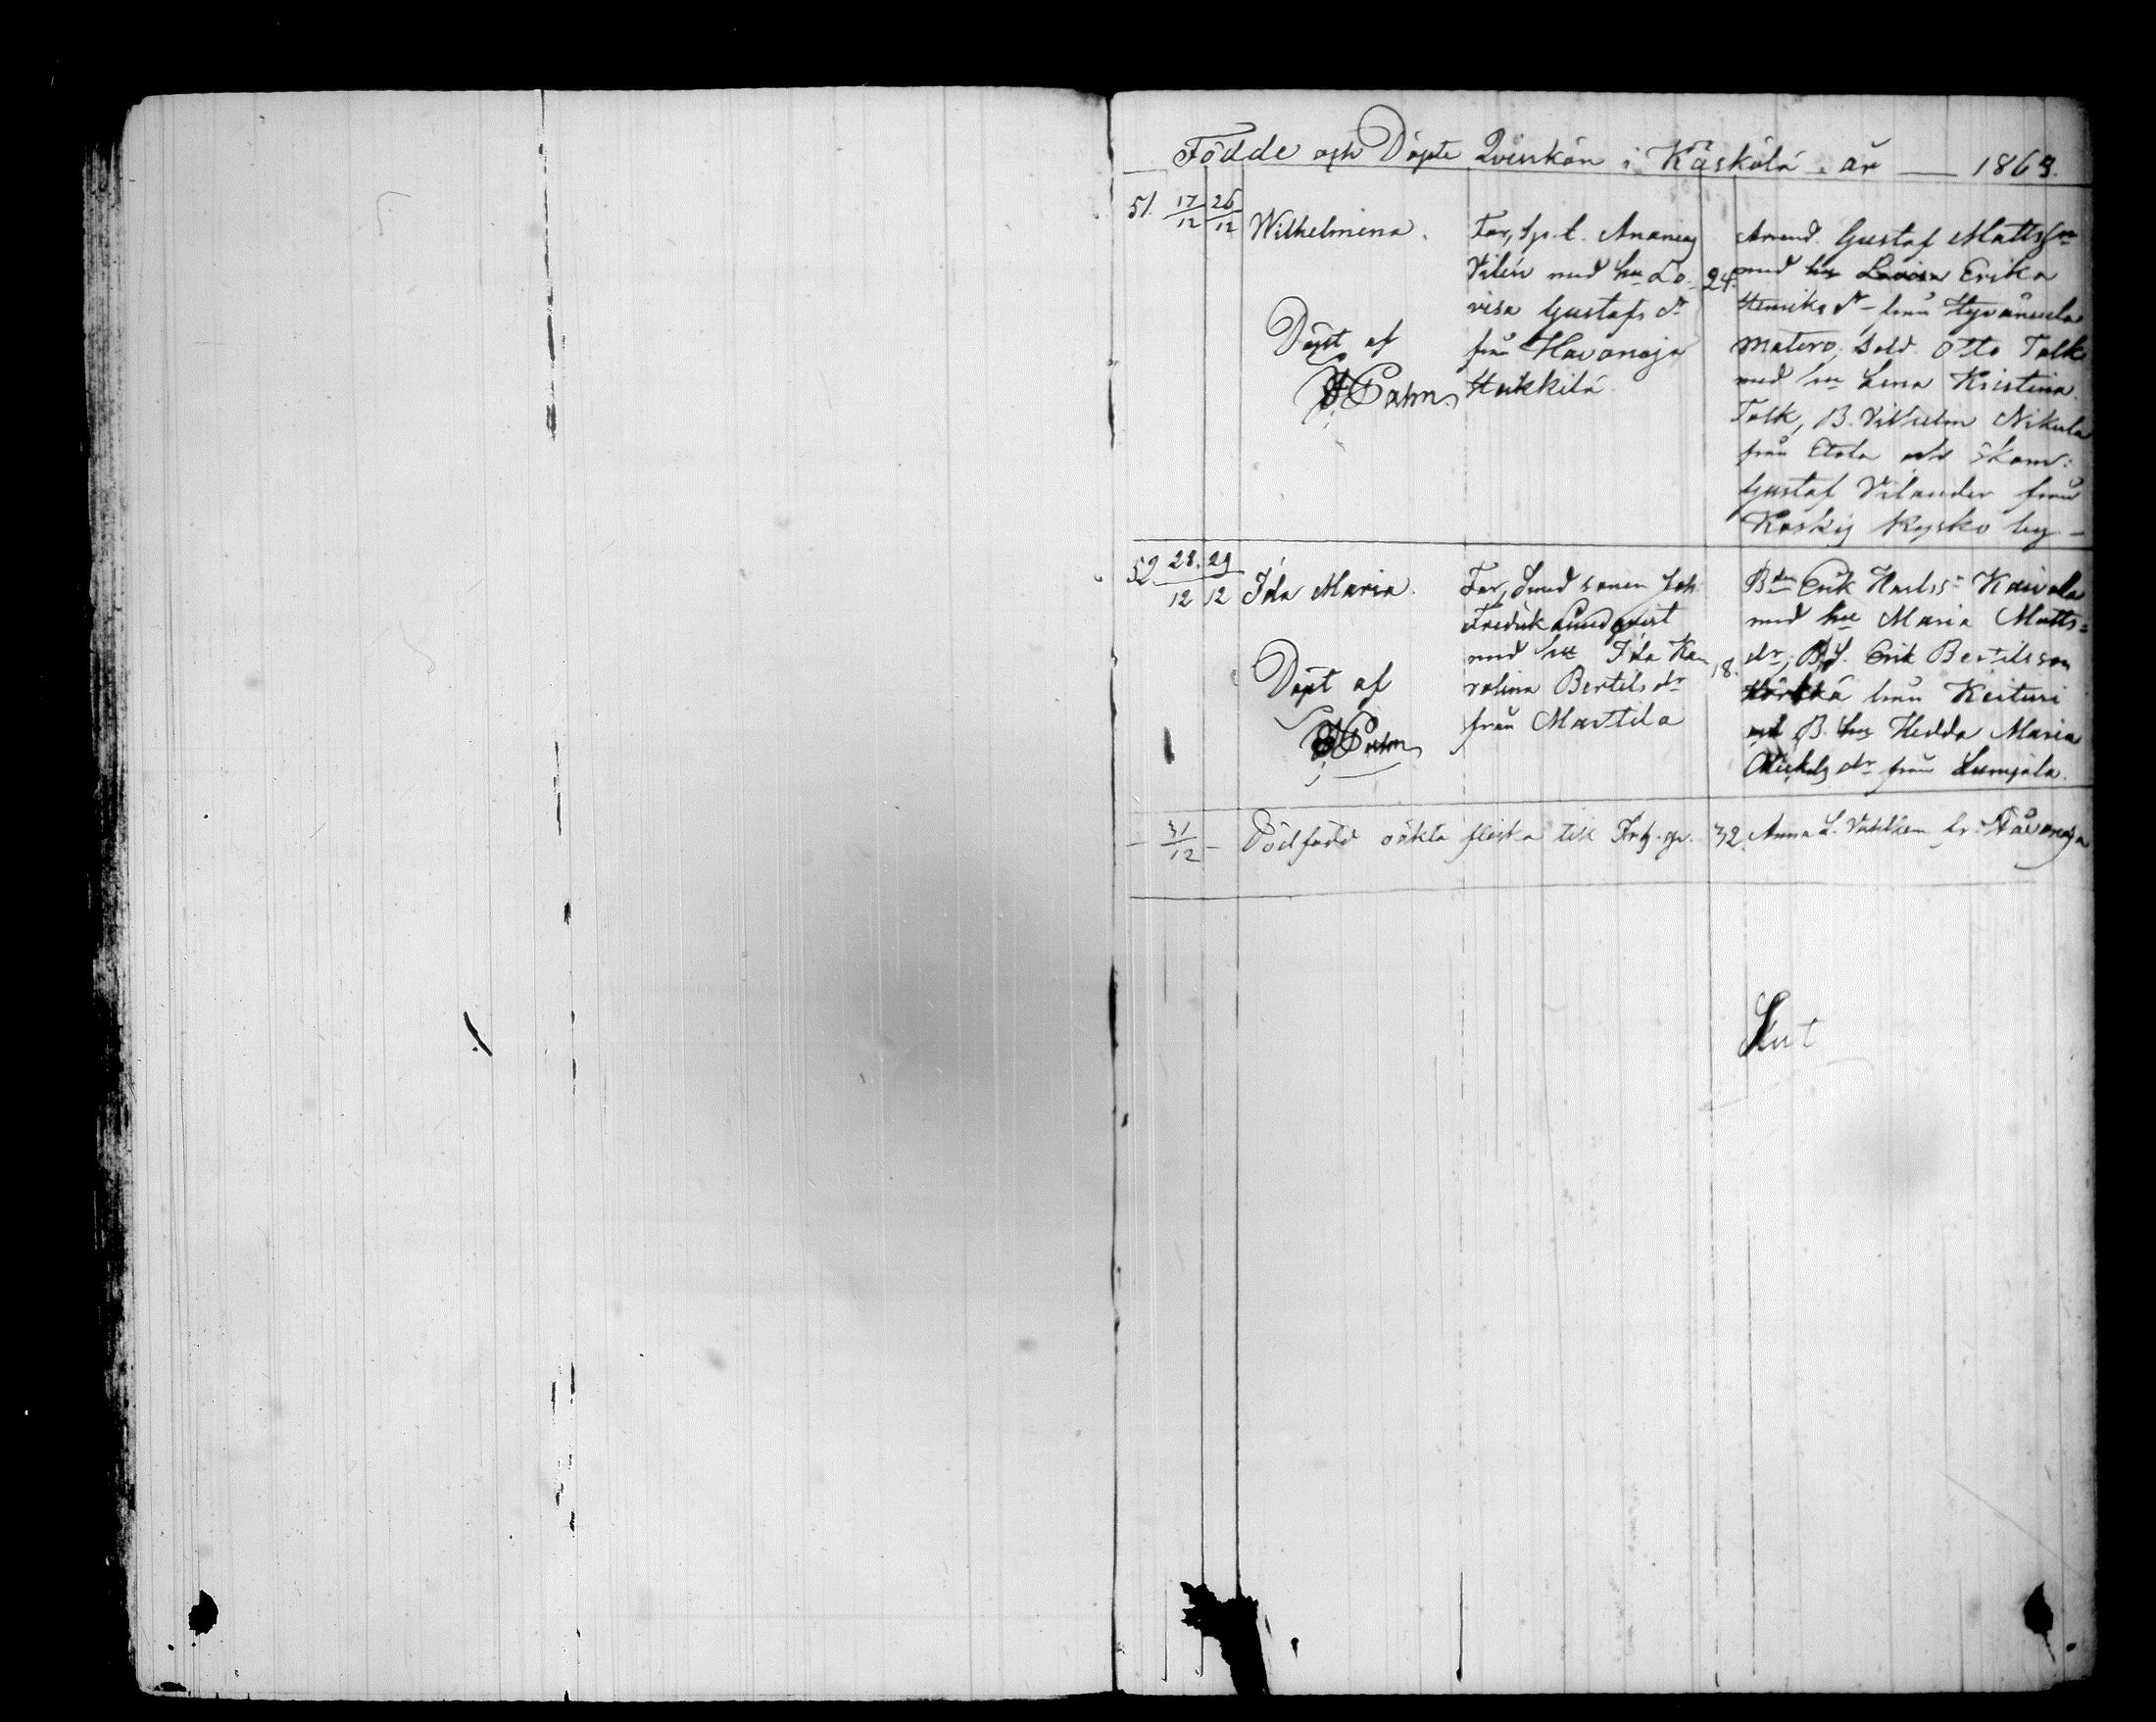 Födde och Döpte Qvinkön i Kåskölä. år — 1863.
51. 17/12 26/12 Wilhelmina.
Far, Sp. t. Ananias
Vilén med hu Lo-
visa Gustafs dr
från Havanoja
Heikkilä
24.
Döpt af
Palm
Arrend. Gustaf Matts son
med hu Lovisa Erika
Henriks dr från Hyväneula
Matero, Sold. Otto Tolk
med hu Lena Kristina
Tolk, B. Vilhelm Nikula
från Etola och Skom:
Gustaf Vilander från
Koskis Kysko by -
52 28/12 29/12 Ida Maria.
Far, Smed sonen Joh
Fredrik Lindqvist
med hu Ida Ka-
rolina Bertils dr
från Marttila
18.
Döpt af
Palm
Bdn Erik Karlss Kaivola
med hu Maria Matts-
dr, B.S. Erik Bertilsson
från Keituri
och B. hu Hedda Maria
Mickels dr från Lumjala.
— 31/12 — Dödfödd oäkta flicka till 32. Anna L. fr. Håvanoja
Slut